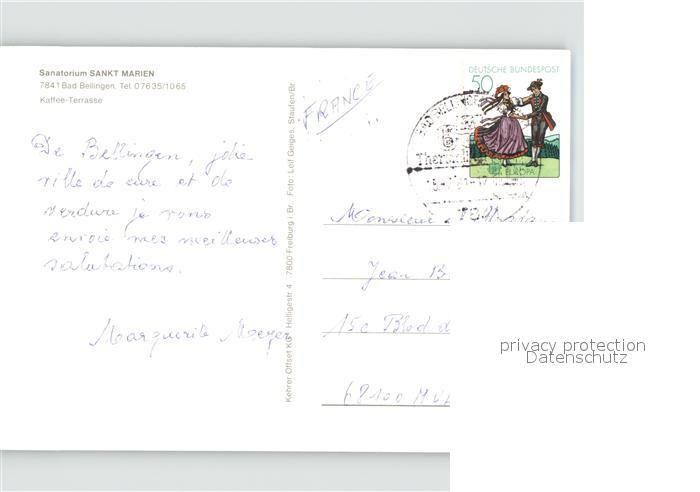 Sanatorium SANKT MARIEN
7841 Bad Bellingen, Tel. 07635/1065
Kaffee-Terrasse
De Bellingen, jolie
ville de cure et de
verdure je vous
envoie mes meilleures
salutations.
Marguerite Meyer
Kehrer Offset KG · Helligestr. 4 7800 Freiburg i. Br. Foto: Leif Geiges, Staufen/Br.
FRANCE
DEUTSCHE BUNDESPOST
50
EUROPA
BAD BELLINGEN
Monsieur
Jean B
15c Blvd d
68100 Mul
privacy protection
Datenschutz